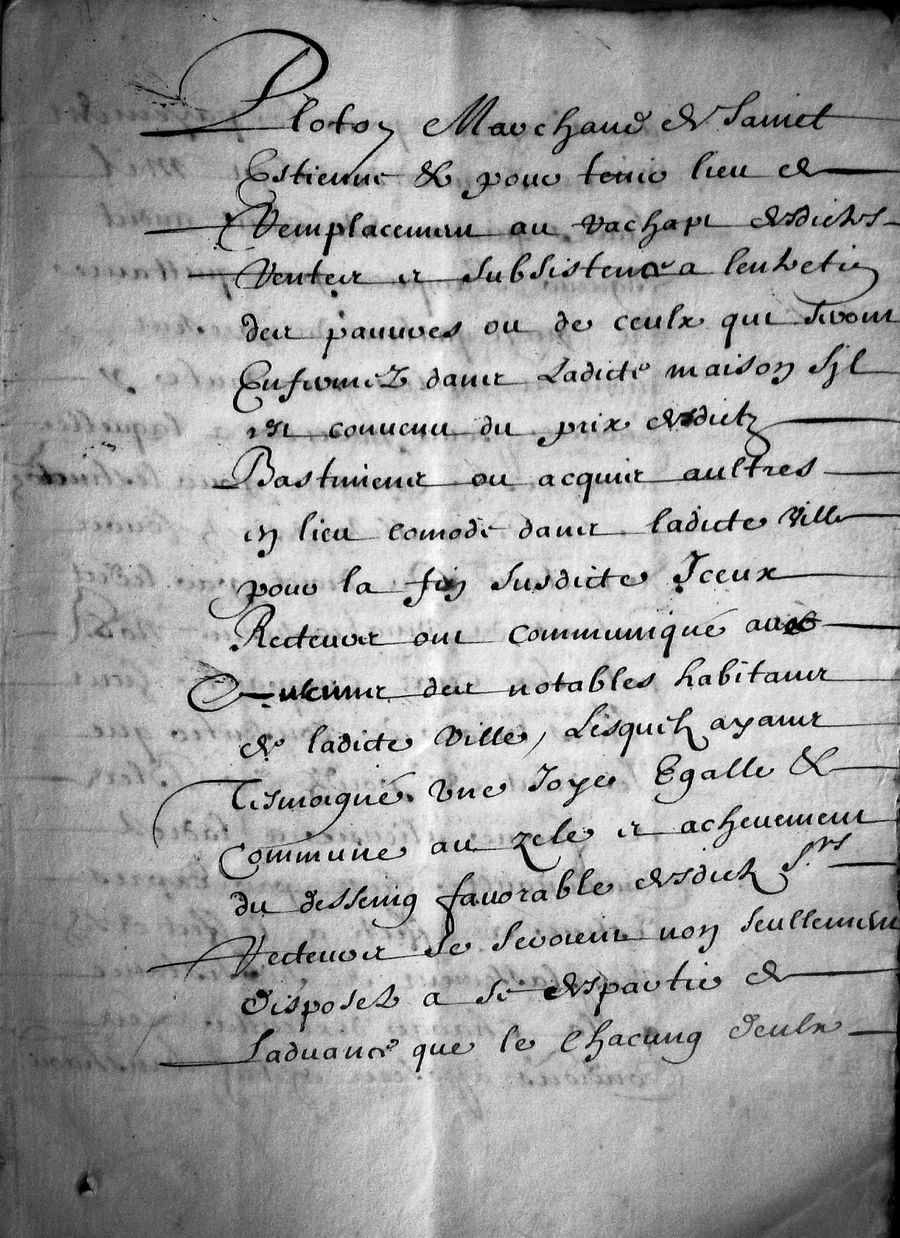 Ploton Marchand de Sainct
Estienne & pour tenir lieu de
Remplacement au rachapt desdictes
Rentes et subsistence a lentretien
des pauures ou de ceulx qui seront
Enfermez dans Ladicte maison Sil
est conuenu du prix desdictz
Bastimens ou acquis aultres
en lieu comode dans ladicte Ville
pour la fin susdicte Iceux
Recteurs ont communiqué auec
des notables habitans
de ladicte Ville, Lesquelz ayans
Tesmoigné vne Joye Egalle &
Commune au zele et acheuement
du desseing favorable desdictz Srs
Recteurs se seroient non seullement
disposez a se despartir de
Laduance que le Chacung deulx